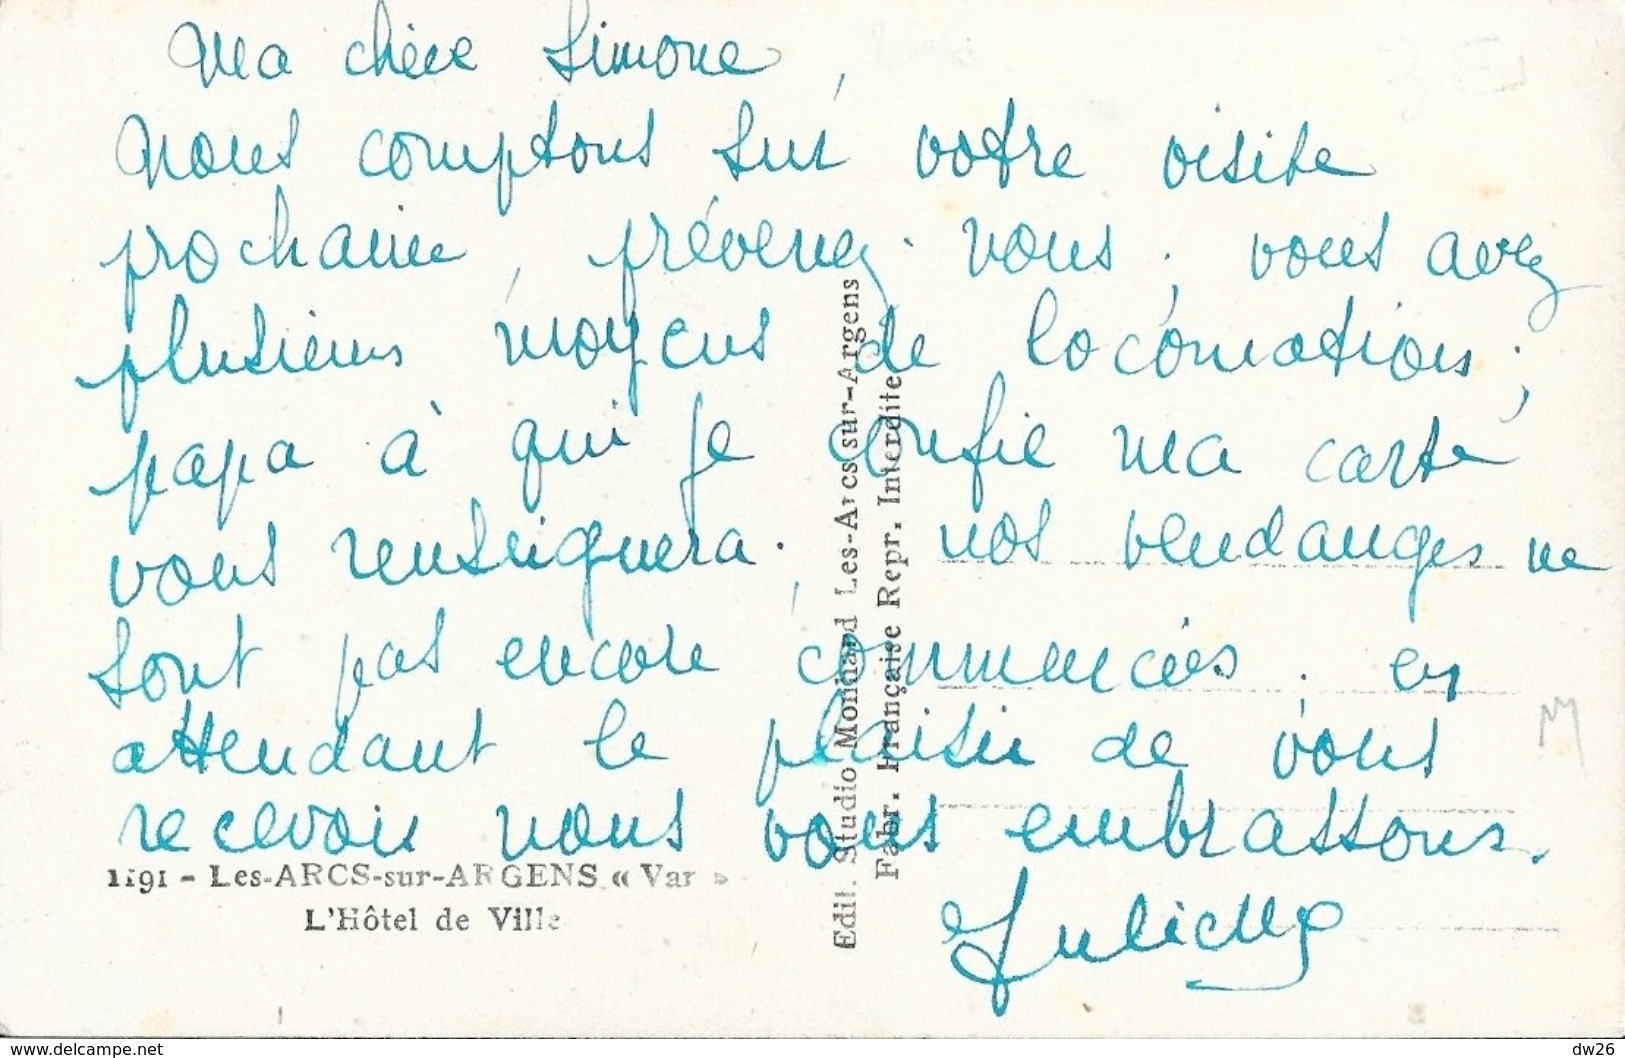 Ma chère Simone,
Nous comptons sur votre visite
prochaine, prévenez-nous, vous avez
plusieurs moyens de locomotions,
papa à qui je confie ma carte
vous renseignera. nos vendanges ne
sont pas encore commencées, en
attendant le plaisir de vous
recevoir nous vous embrassons.
Juliette
1191 - Les-ARCS-sur-ARGENS « Var »
L'Hôtel de Ville
Edit. Studio Monhard Les-Arcs-sur-Argens
Fabr. Française Repr. Interdite
www.delcampe.net
dw26